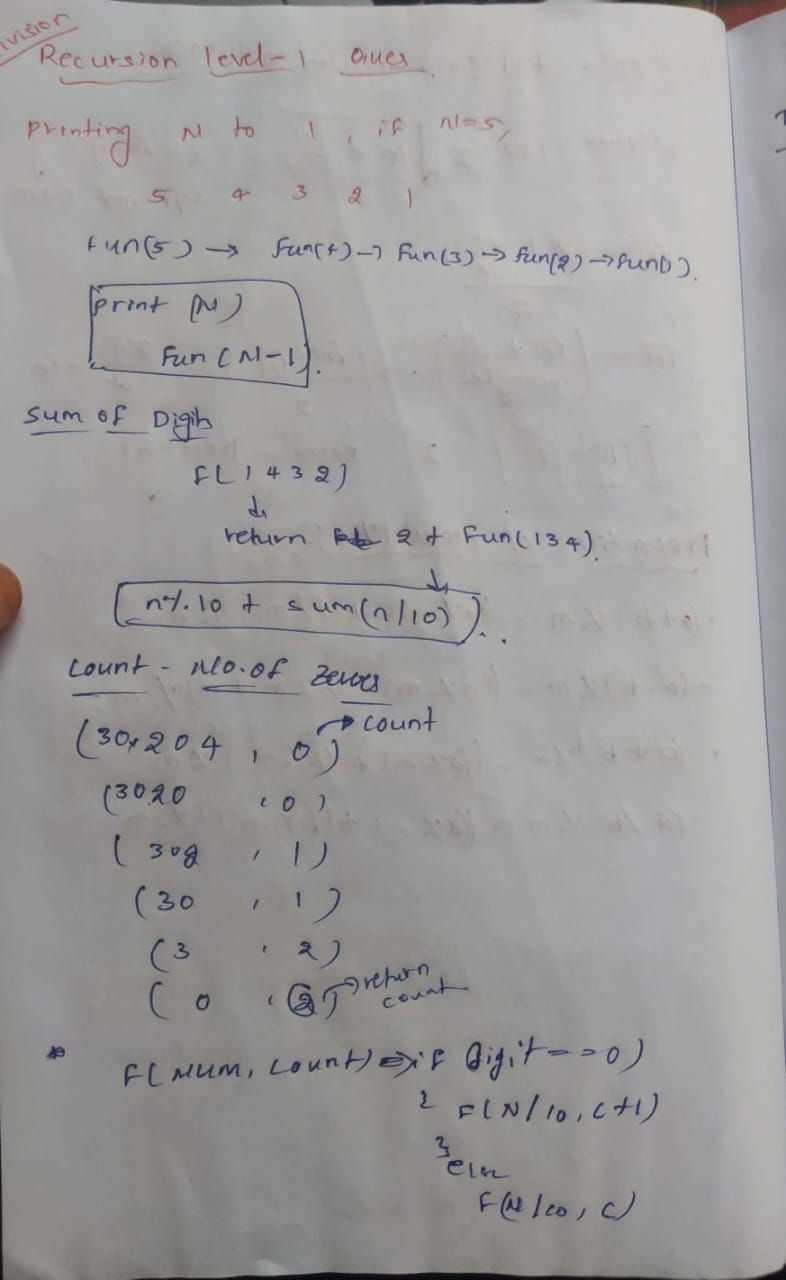 ivision
Recursion level-1 Ques
printing N to 1, if N=5,
5 4 3 2 1
fun(5) → fun(4) → fun(3) → fun(2) → fun(1).
print (N)
Fun (N-1).
Sum of Digits
F(1432)
↓
return 2 + Fun(134).
↓
n%10 + sum(n/10)).
Count - No. of Zeroes
→ count
(30204, 0)
(3020, 0)
(302, 1)
(30, 1)
(3, 2)
(0, 2) → return
count
* F(Num, count) => if digit==0)
{ F(N/10, C+1)
}
else
F(N/10, C)